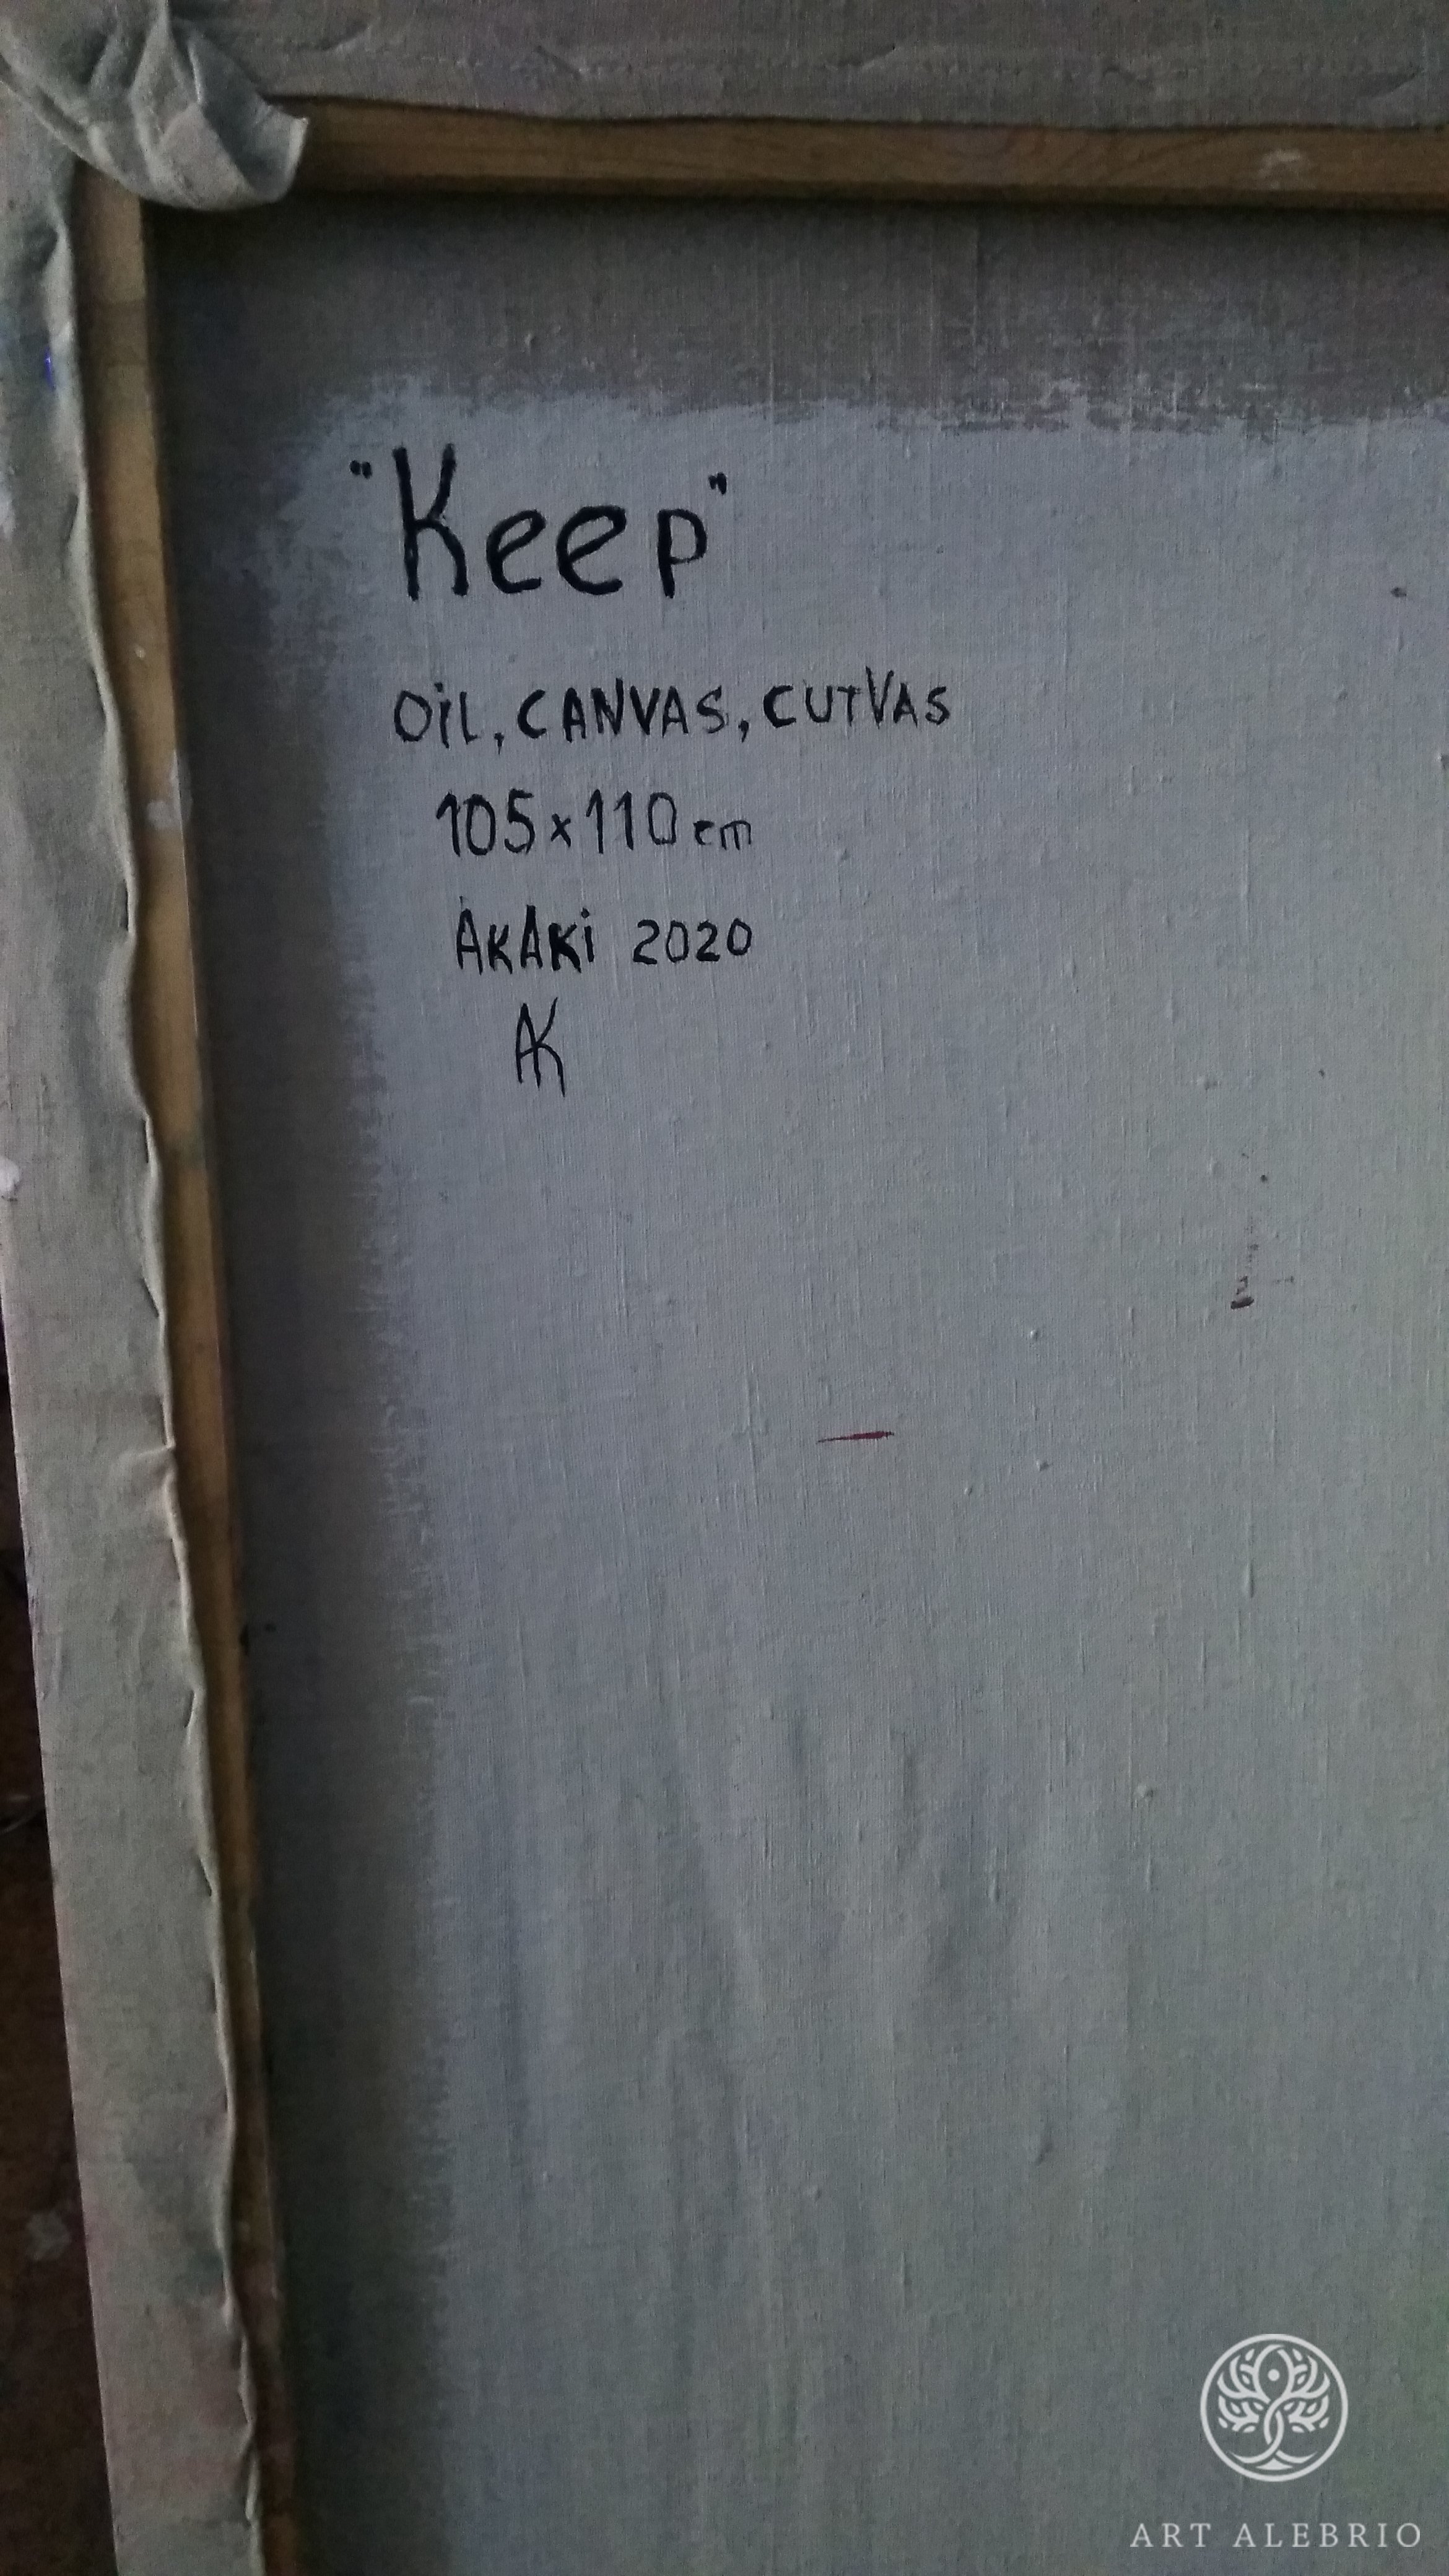 "Keep"
OiL, CANVAS, CUTVAS
105×110 cm
AKAKi 2020
AK
ART ALEBRIO